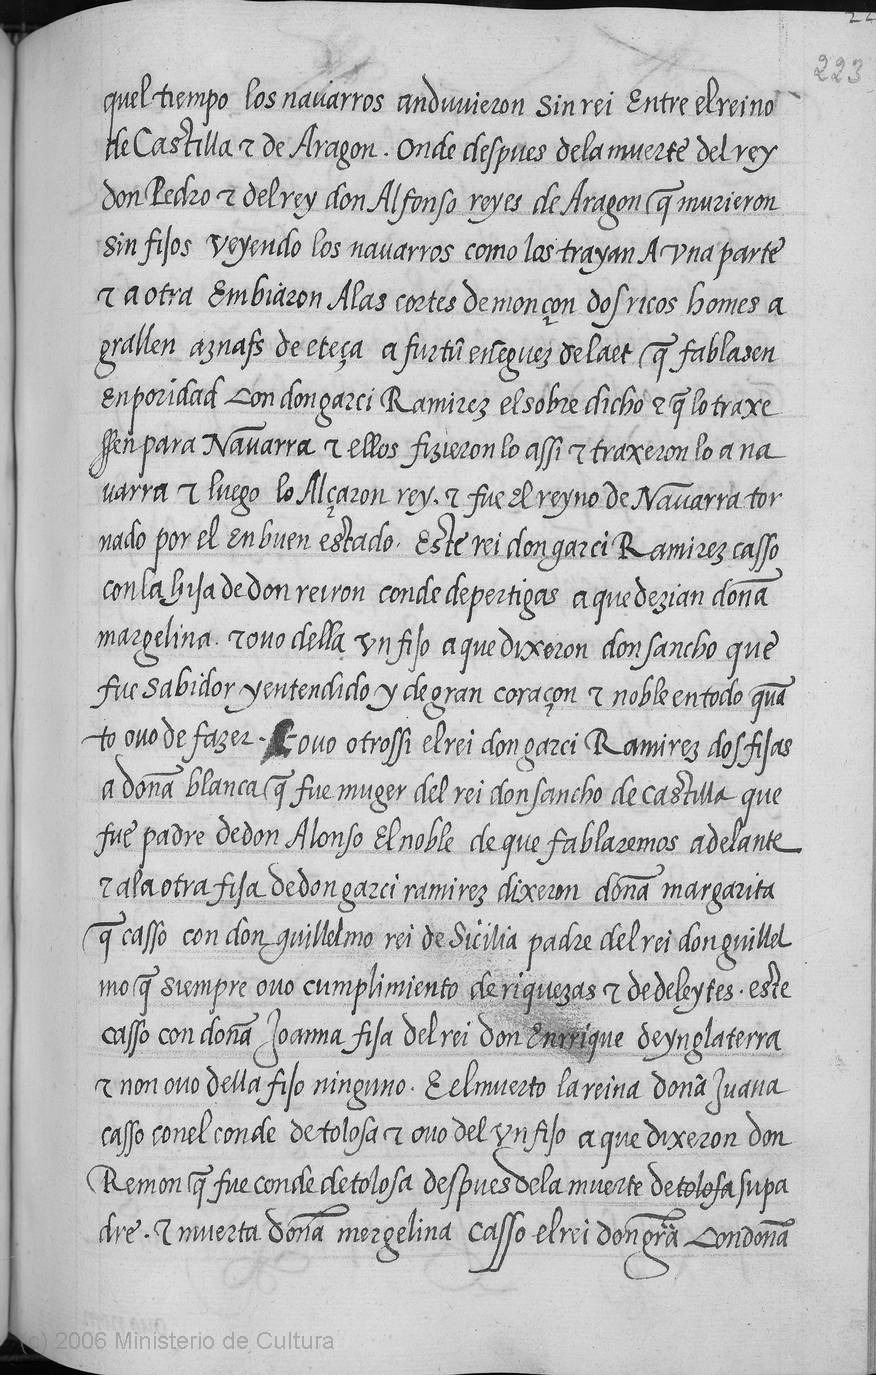 223
quel tiempo los navarros anduvieron sin rei Entre el reino
de Castilla τ de Aragon. Onde despues dela muerte del rey
don Pedro τ del rey don Alfonso reyes de Aragon q̃ murieron
sin fijos veyendo los navarros como los trayan A vna parte
τ a otra Embiaron Alas cortes de monçon dos ricos homes a
grallen aznafs de eteça a furtũ eñeguez de laet q̃ fablasen
en poridad con don garci Ramirez el sobre dicho τ q̃ lo traxe
ssen para Navarra τ ellos fizieron lo assi τ traxeron lo a na
varra τ luego lo Alçaron rey. τ fue El reyno de Navarra tor
nado por el En buen estado. Este rei don garci Ramirez casso
con la hija de don reiron conde de pertigas a que dezian doña
margelina. τ ovo della vn fijo a que dixeron don sancho que
fue sabidor y entendido y de gran coraçon τ noble en todo quã
to ovo de fazer. τ ovo otrossi el rei don garci Ramirez dos fijas
a doña blanca q̃ fue muger del rei don sancho de castilla que
fue padre de don Alonso El noble de que fablaremos adelante
τ ala otra fija de don garci ramirez dixeron doña margarita
q̃ casso con don guillelmo rei de Sicilia padre del rei don guillel
mo q̃ siempre ovo cumplimiento de riquezas τ de deleytes. este
casso con doña Joanna fija del rei don Enrrique de ynglaterra
τ non ovo della fijo ninguno. E el muerto la reina doña Juana
casso con el conde de tolosa τ ovo del vn fijo a que dixeron don
Remon q̃ fue conde de tolosa despues dela muerte de tolosa su pa
dre. τ muerta doña mergelina casso el rei don gr̃a con doña
(c) 2006 Ministerio de Cultura